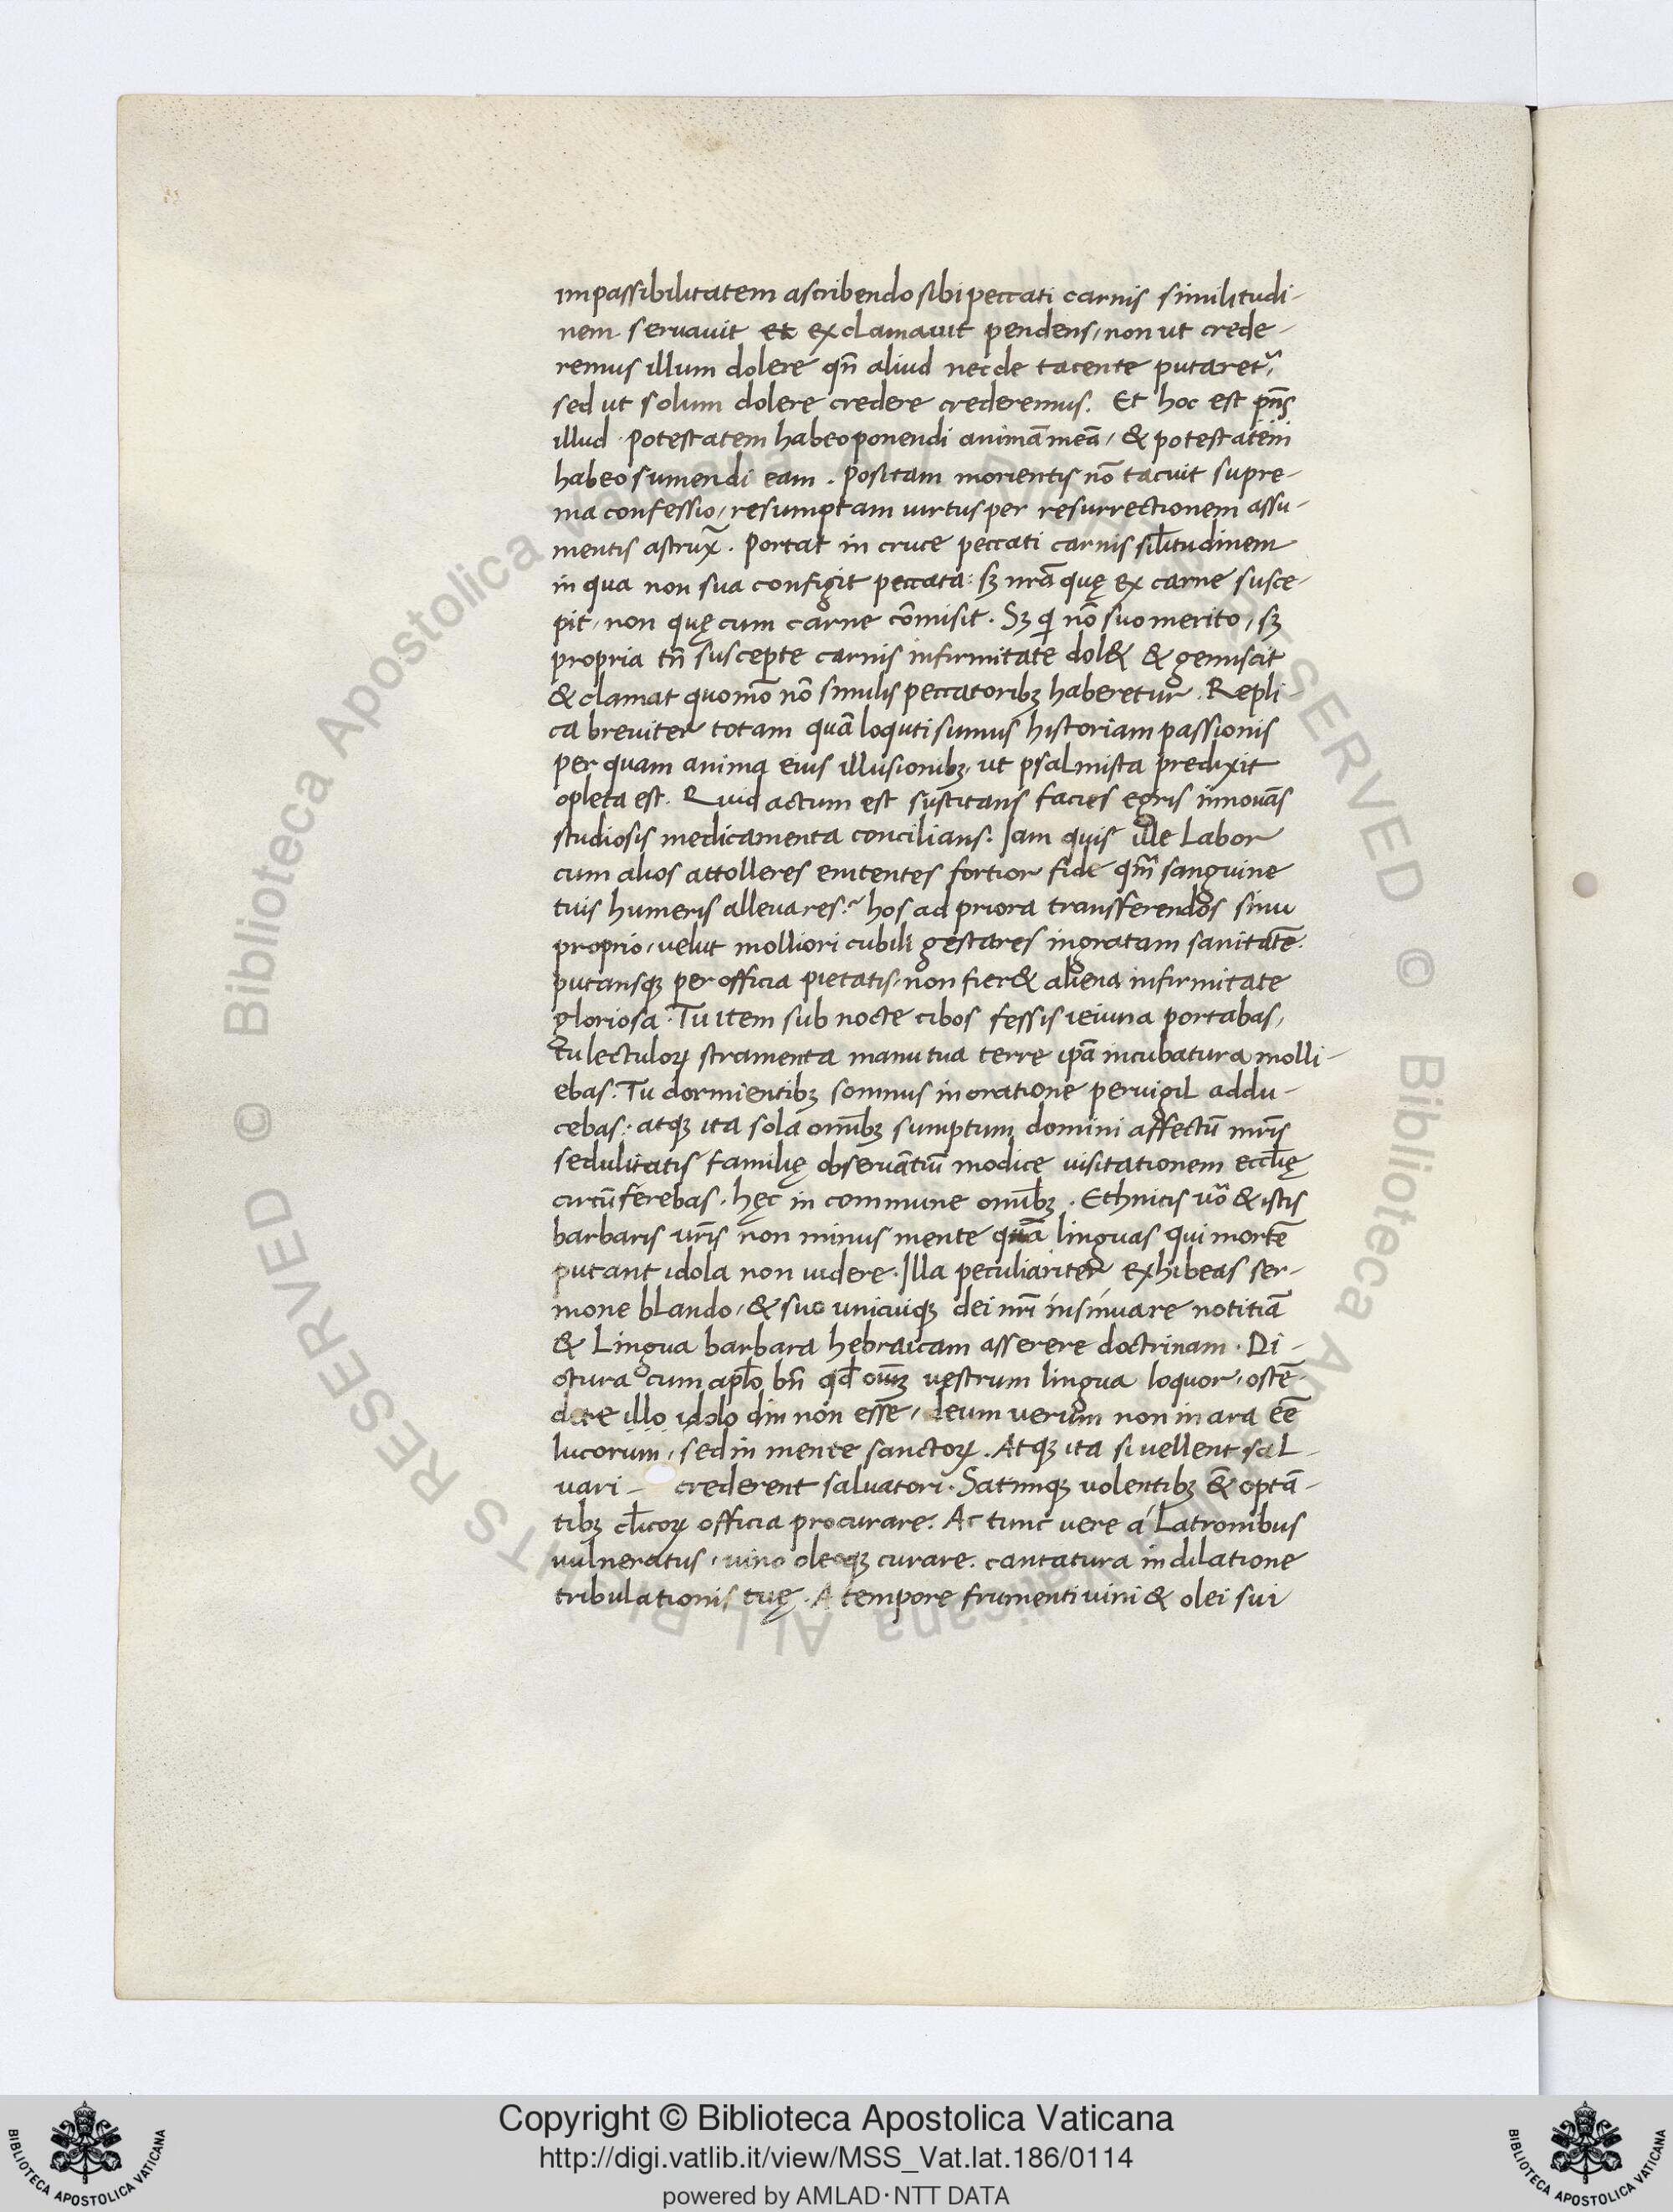 impassibilitatem ascribendo sibi peccati carnis similitudi-
nem seruauit et exclamauit pendens, non ut crede-
remus illum dolere qñ aliud nec de tacente putaret᷑
sed ut solum dolere credere crederemus. Et hoc est pñs
illud. Potestatem habeo ponendi animã meã, & potestatem
habeo sumendi eam. Positam morientis nõ tacuit supre-
ma confessio, resumptam uirtus per resurrectionem assu-
mentis astrux̃. Portat in cruce peccati carnis sil̃itudinem
in qua non sua configit peccata: sꝫ nrã quę ex carne susce-
pit, non quę cum carne cõmisit. Sꝫ qi nõ suo merito, sꝫ
propria tñ suscepte carnis infirmitate dol& & gemiscit
& clamat quomõ nõ similis peccatoribꝫ haberetur. Repli-
ca breuiter totam quã loquti sumus historiam passionis
per quam anima eius illusionibꝫ, ut psalmista predixit
opleta est. Quid actum est sustitans facies egris innouãs
studiosis medicamenta concilians. Iam quis ille Labor
cum alios attolleres enitentes fortior fide qm̃ sanguine
tuis humeris alleuares? hos ad priora transferendos sinu
proprio, uelut molliori cubili gestares ingratam sanitatẽ.
putansqꝫ per officia pietatis, non fier& aliena infirmitate
gloriosa. Tu item sub nocte cibos fessis ieiuna portabas,
tu lectuloꝝ stramenta manu tua terre ip̃a incubatura molli-
ebas. Tu dormientibꝫ somnus in oratione peruigil addu-
cebas: atqꝫ ita sola omĩbꝫ sumptum domini affectũ mr̃is
sedulitatis familię obseruãtiũ modice uisitationem eccl̃ię
circũferebas. hęc in commune omĩbꝫ. Ethnicis uõ & istis
barbaris ur̃is non minus mente quã linguas qui mortẽ
putant idola non uidere. Illa peculiariter exhibeas ser-
mone blando, & suo unicuiqꝫ dei nr̃i insinuare notitiã
& Lingua barbara hebraicam asserere doctrinam. Di-
ctura cum apl̃o bñ qd̃ om̃ꝫ uestrum lingua loquor, ostẽ-
dere illo idolo dm̃ non esse, deum uerum non in ara eẽ
lucorum, sed in mente sanctoꝝ. Atqꝫ ita si uellent sal-
uari - crederent saluatori. Satimqꝫ uolentibꝫ & optã-
tibꝫ cl̃icoꝝ officia procurare. Ac tunc uere á Latronibus
uulneratus, uino oleoqꝫ curare. cantatura in dilatione
tribulationis tuę. A tempore frumenti uini & olei sui
Copyright © Biblioteca Apostolica Vaticana
http://digi.vatlib.it/view/MSS_Vat.lat.186/0114
powered by AMLAD·NTT DATA